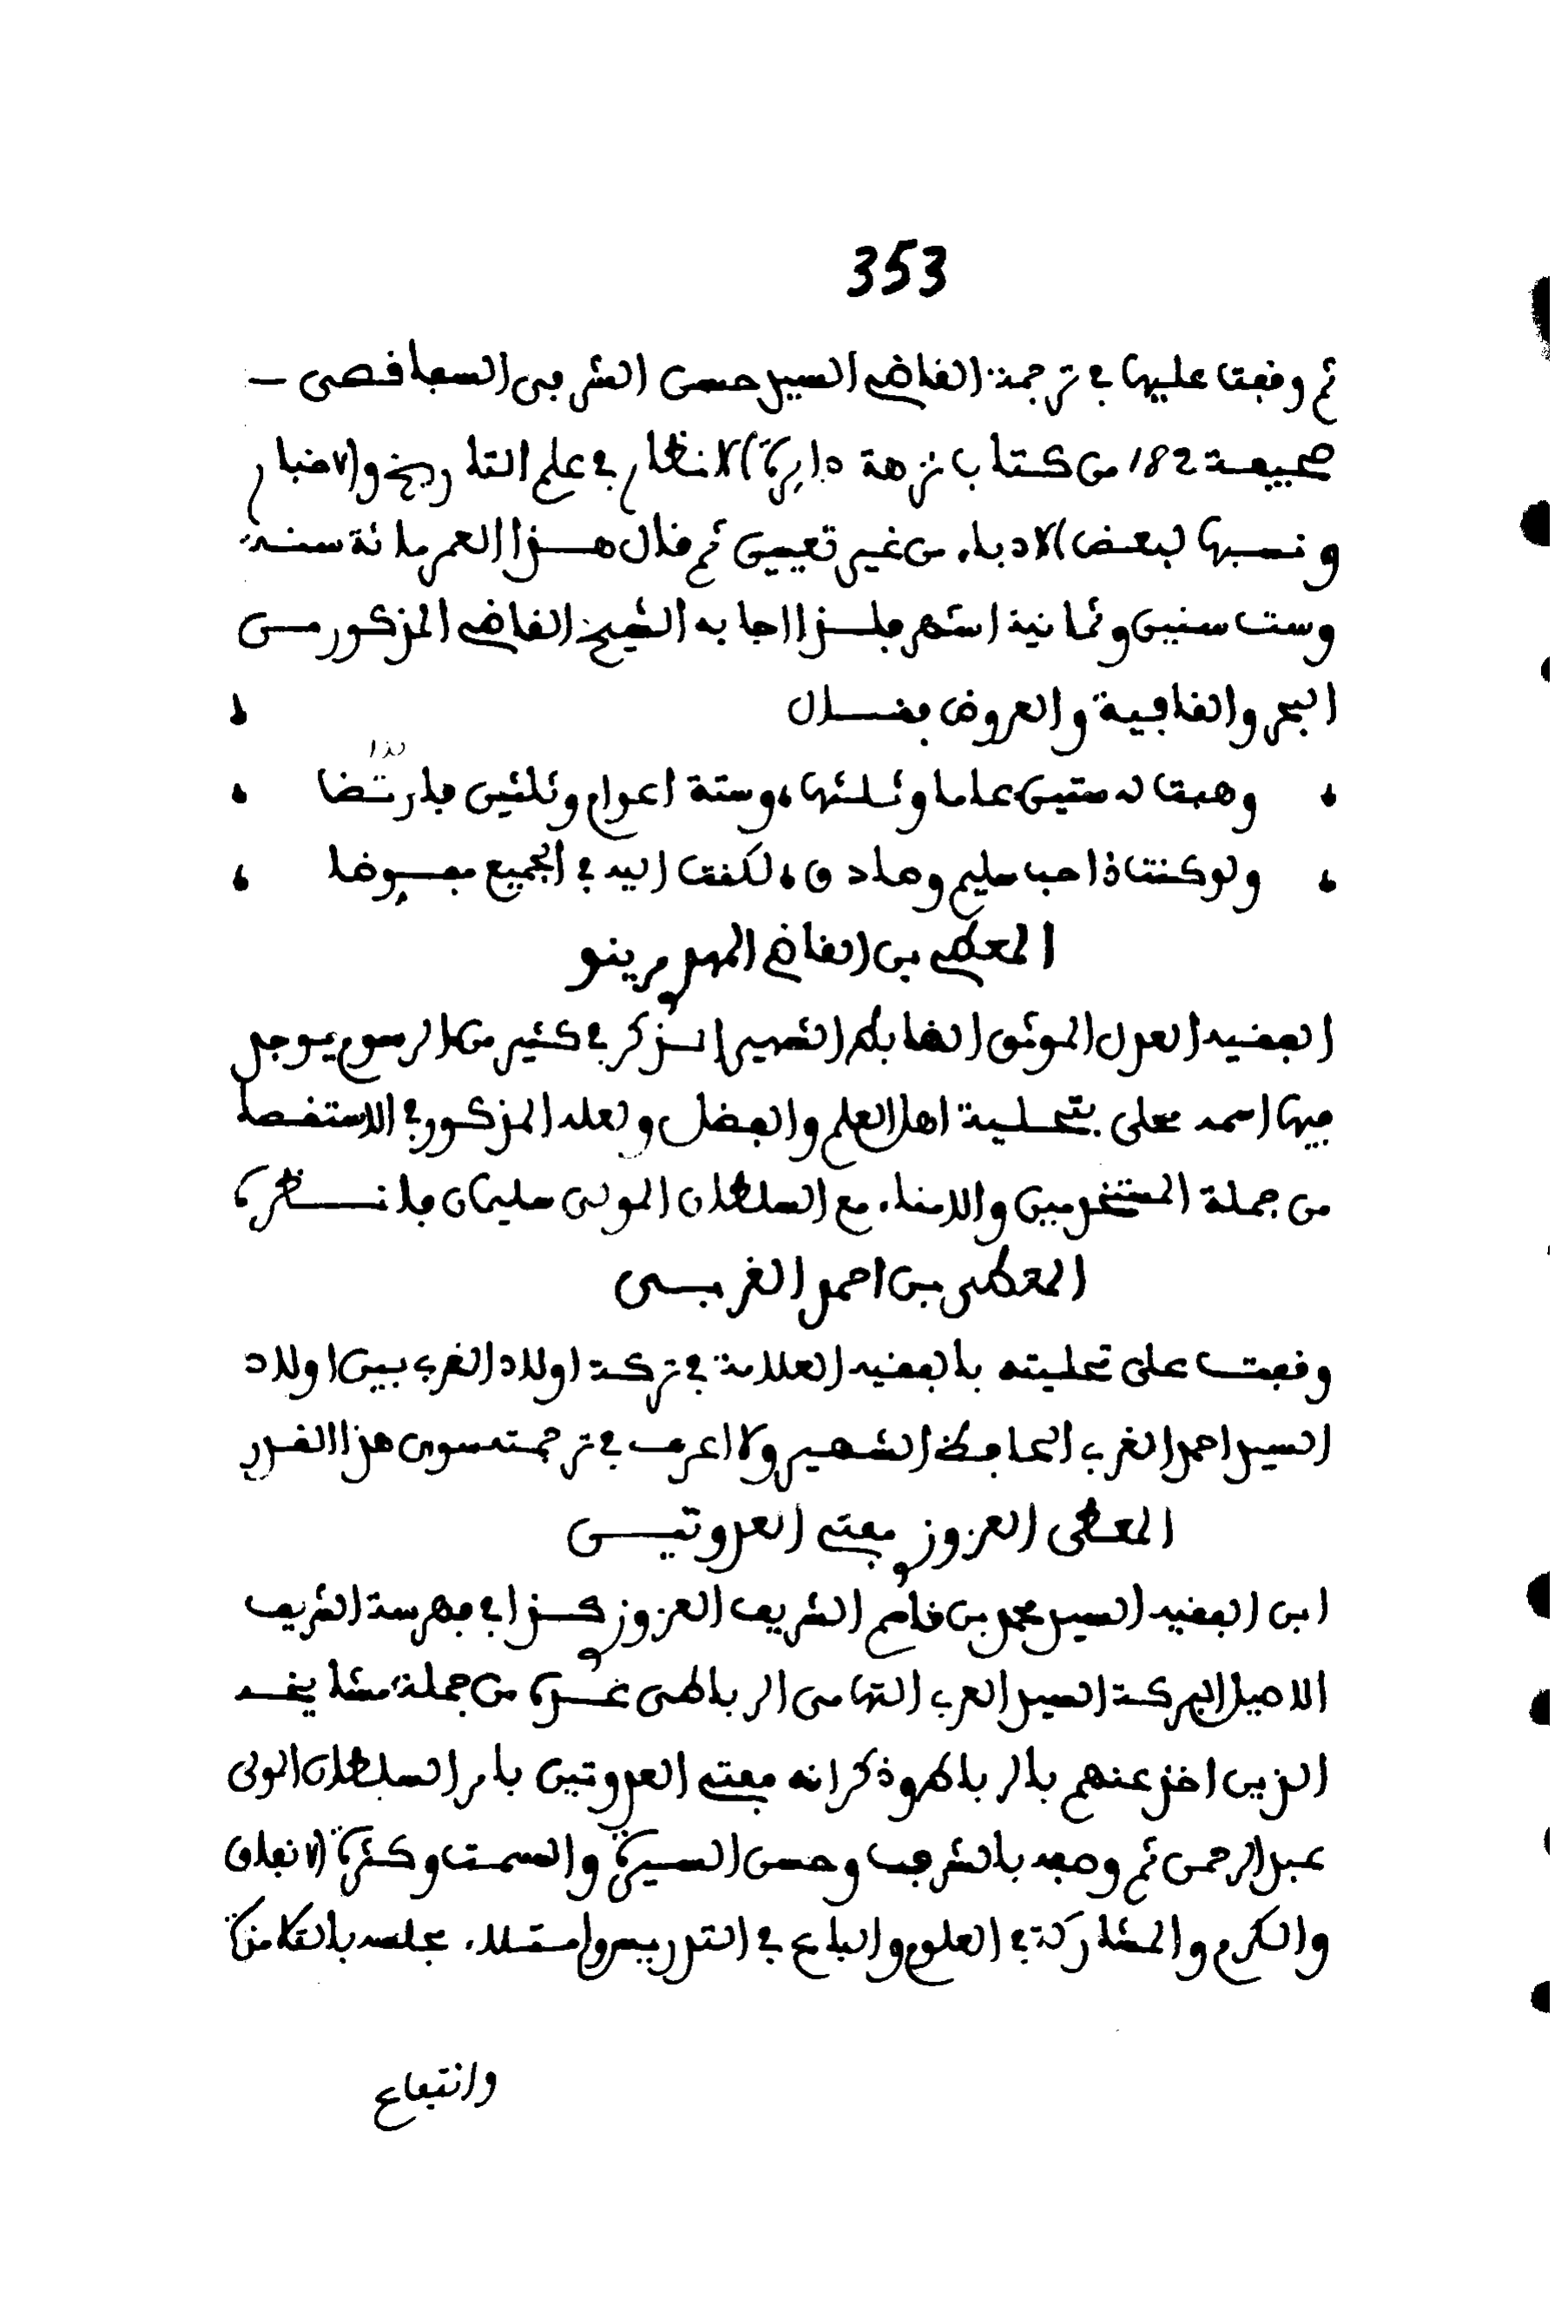 353
ثم وقفت عليها في ترجمة القاضي السيد حسن الشرفي السفاقصي —
صحيفة 182 من كتاب نزهة دايرة الانظار في علم التاريخ والاخبار
ونسبها لبعض الادباء من غير تعيين ثم قال هذا العمر مائة سنة
وست سنين وثمانية اشهر فلذا اجابه الشيخ القاضي المذكور من
البحر والقافية والعروض فقال
وهبت له ستين عاما وثلثها، وستة اعوام وثلثين فارتضا
لذا
ولو كنت ذا حب سليم وصادق، لكنت اليه في الجميع مفوضا
المعطي بن القاضي المهدي مرينو
الفقيه العدل الموثق الضابط الشهير الذكر في كثير من الرسوم يوجد
فيها اسمه محلى بتحلية اهل العلم والفضل ولعله المذكور في الاستقصا
من جملة المستخدمين والامناء مع السلطان المولى سليمان فانظره
المعطي بن احمد الغربي
وقفت على تحليته بالفقيه العلامة في تركة اولاد الغرب بين اولاد
السيد احمد الغرب الحافظ الشهير ولا اعرف في ترجمته سوى هذا القدر
المعطي العزوزي مفتي العدوتين
ابن الفقيه السيد محمد بن قاسم الشريف العزوزي كذا في فهرسة الشريف
الاصيل البركة السيد العرب التهامي الرباطي عده من جملة مشايخه
الذين اخذ عنهم بالرباط وذكر انه مفتي العدوتين بامر السلطان المولى
عبد الرحمن ثم وصفه بالشرف وحسن السيرة والسمت وكثرة الانفاق
والكرم والمشاركة في العلوم والباع في التدريس وامتلاء مجلسه بالتلامذة
وانتفاع